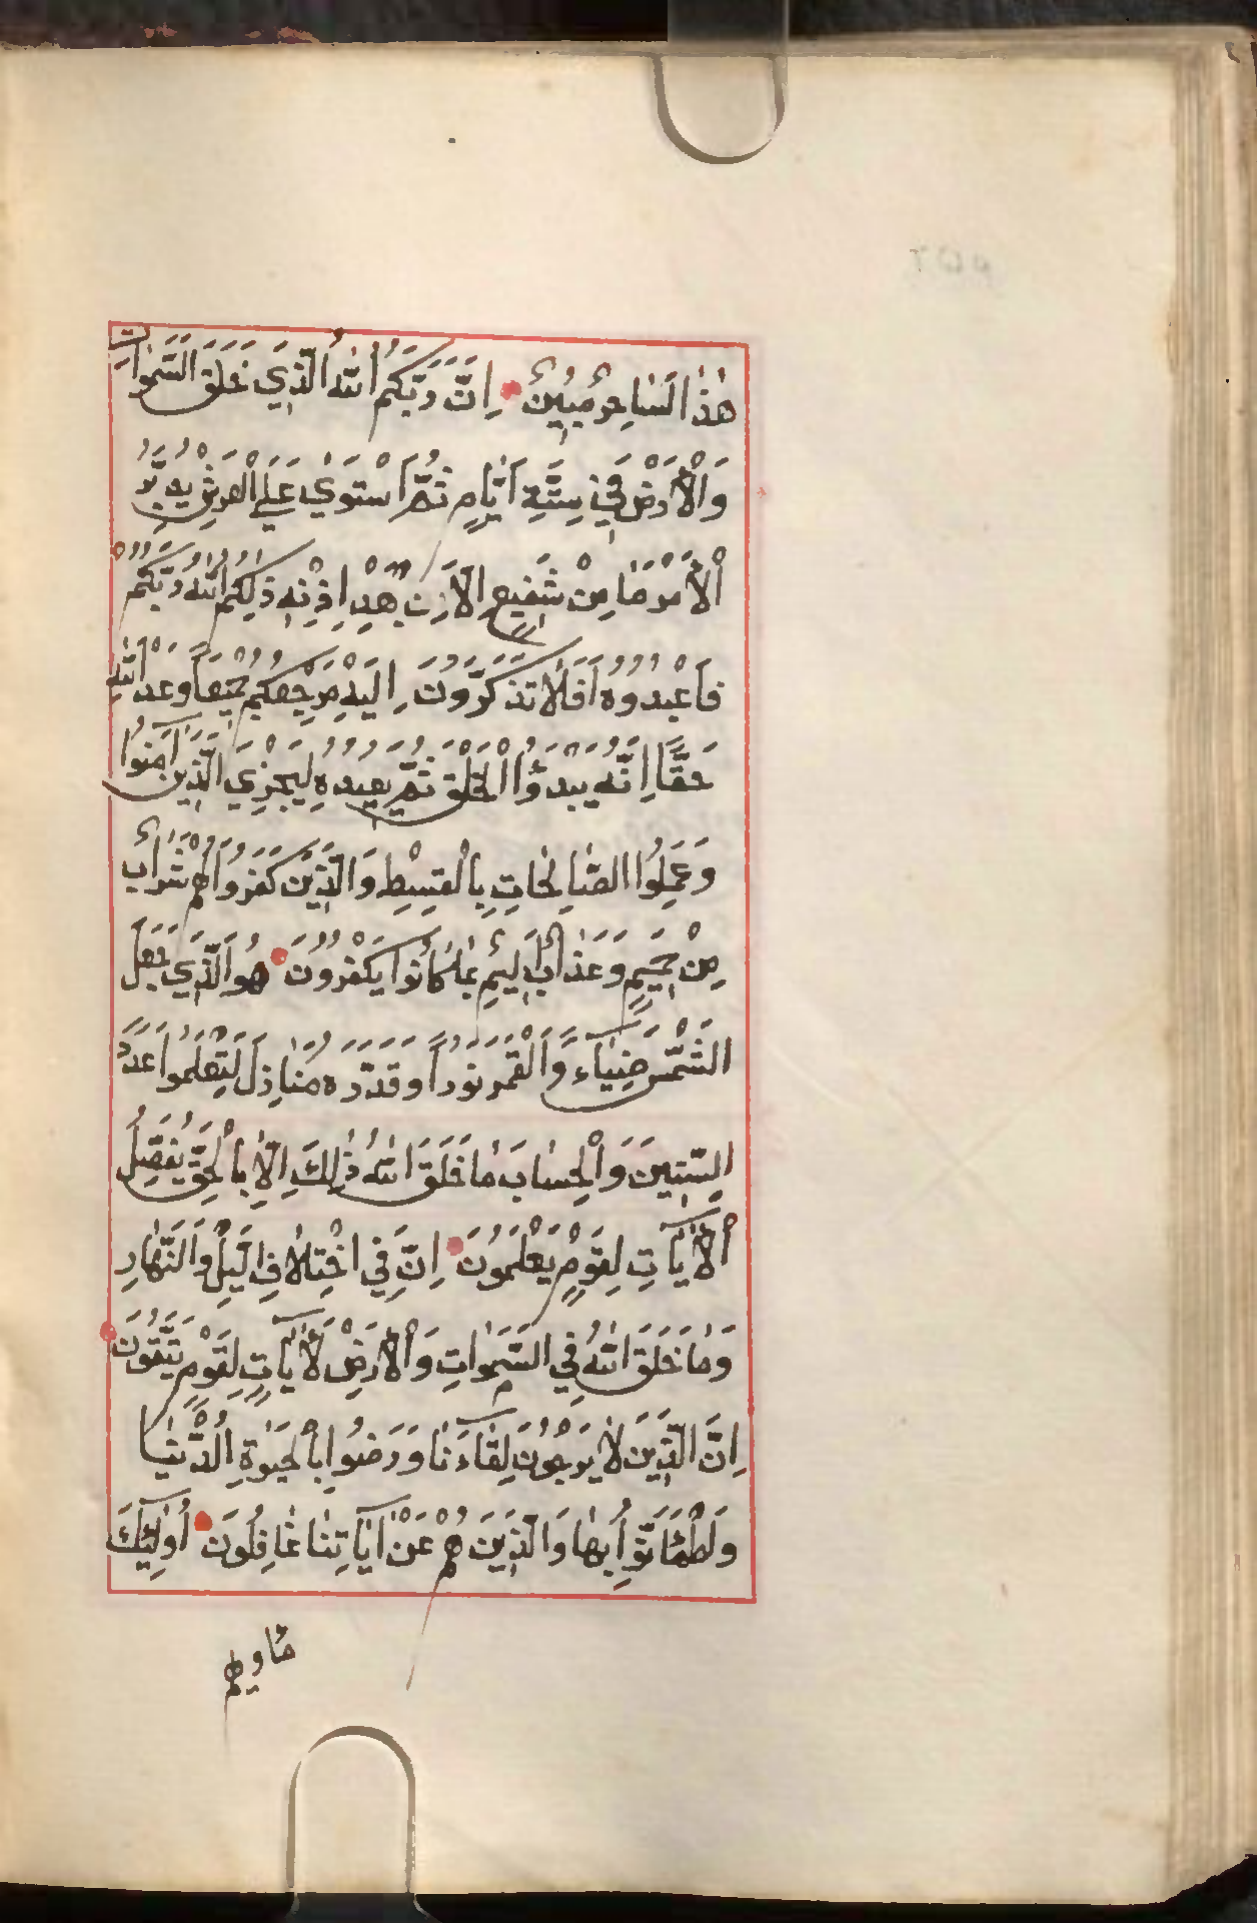 هٰذٰا لَسٰاحِرٌ مُبِينٌ اِنَّ رَبَّكُمُ اللّٰهُ الَّذِي خَلَقَ السَّمٰوَاتِ
وَالْأَرْضَ فِي سِتَّةِ اَيّٰامٍ ثُمَّ اسْتَوٰي عَلَي الْعَرْشِ يُدَبِّرُ
الْأَمْرَ مٰا مِنْ شَفِيعٍ اِلّٰا مِنْ بَعْدِ اِذْنِهِ ذٰلِكُمُ اللّٰهُ رَبُّكُمْ
فَاعْبُدُوُهُ اَفَلٰا تَذَكَّرُونَ اِلَيْهِ مَرْجِعُكُمْ جَمِيعاً وَعْدَ اللّٰهِ
حَقًّا اِنَّهُ يَبْدَؤُا الْخَلْقَ ثُمَّ يُعِيدُهُ لِيَجْزِيَ الَّذِينَ آمَنُوا
وَعَمِلُوا الصّٰالِحٰاتِ بِالْقِسِطِ وَالَّذِيْنَ كَفَرُوا لَهُمْ شَرٰابٌ
مِنْ حَمِيمٍ وَعَذٰابٌ اَلِيمٌ بِمٰا كٰانُوا يَكْفُرُونَ هُوَ الَّذِي جَعَلَ
الشَّمْسَ ضِيٰآءً وَالْقَمَرَ نُوراً وَقَدَّرَهُ مَنٰازِلَ لِتَعْلَمُوا عَدَدَ
السِّنِينَ وَالْحِسٰابَ مٰا خَلَقَ اللّٰهُ ذٰلِكَ اِلّٰا بِالْحَقِّ يُفَصِّلُ
الْآيٰاتِ لِقَوْمٍ يَعْلَمُونَ اِنَّ فِي اخْتِلٰافِ الَّيْلِ وَالنَّهٰارِ
وَمٰا خَلَقَ اللّٰهُ فِي السَّمٰوٰاتِ وَالْأَرْضِ لَآيٰاتٍ لِقَوْمٍ يَتَّقُونَ
اِنَّ الَّذِينَ لٰا يَرْجُونَ لِقٰآءَنٰا وَرَضُوا بِالْحَيٰوةِ الدُّنْيٰا
وَاطْمَأَنُّوا بِهٰا وَالَّذِينَ هُمْ عَنْ آيٰاتِنٰا غٰافِلُونَ اُولٰئِكَ
مٰاويهم